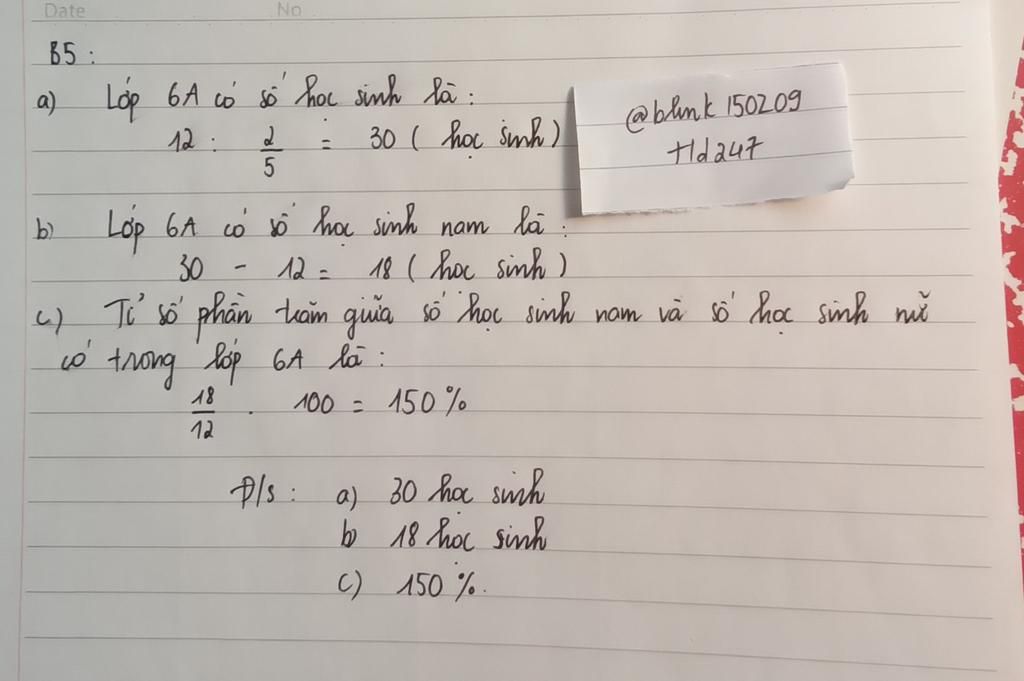 Date No
B5 :
a) Lớp 6A có số học sinh là :
12 : 2/5 = 30 ( học sinh )
@blink150209
tld247
b) Lớp 6A có số học sinh nam là :
30 - 12 = 18 ( học sinh )
c) Tỉ số phần trăm giữa số học sinh nam và số học sinh nữ
có trong lớp 6A là :
18/12 . 100 = 150 %
Đ/s : a) 30 học sinh
b 18 học sinh
c) 150 %.